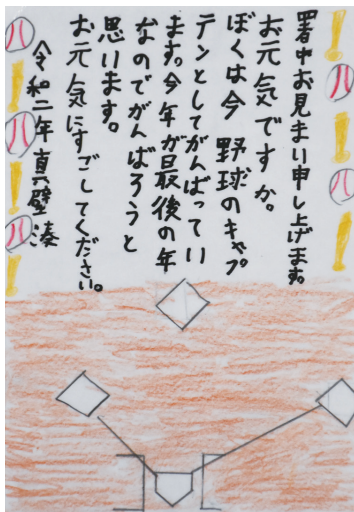 署中お見まい申し上げます。
お元気ですか。
ぼくは今 野球のキャプ
テンとしてがんばってい
ます。今年が最後の年
なのでがんばろうと
思います。
お元気にすごしてください。
令和二年 真壁 湊